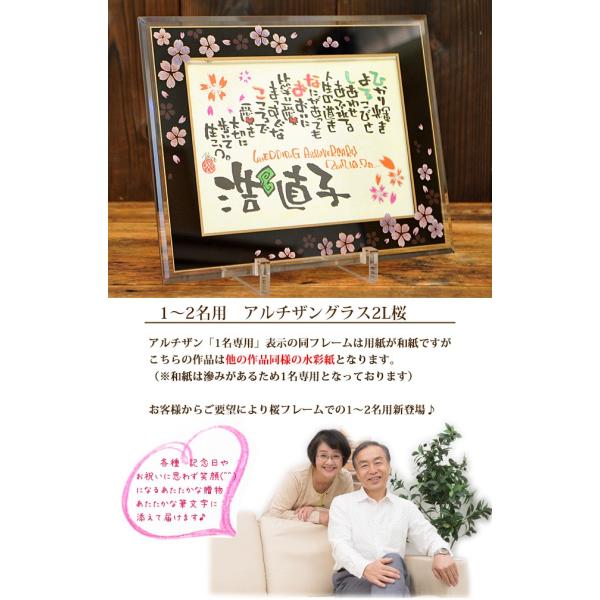 ひかり輝き
よろこびと
しあわせ
あふれる。
人生の道を
なにがあっても
おおいに
まっすぐな
こころで
大切に
WEDDING ANNIVERSARY
浩 直子
1～2名用 アルチザングラス2L桜
アルチザン「1名専用」表示の同フレームは用紙が和紙ですが
こちらの作品は他の作品同様の水彩紙となります。
（※和紙は滲みがあるため1名専用となっております）
お客様からご要望により桜フレームでの1～2名用新登場♪
各種 記念日や
お祝いに思わず笑顔(^^)
になるあたたかな贈物
あたたかな筆文字に
添えて届けます♪